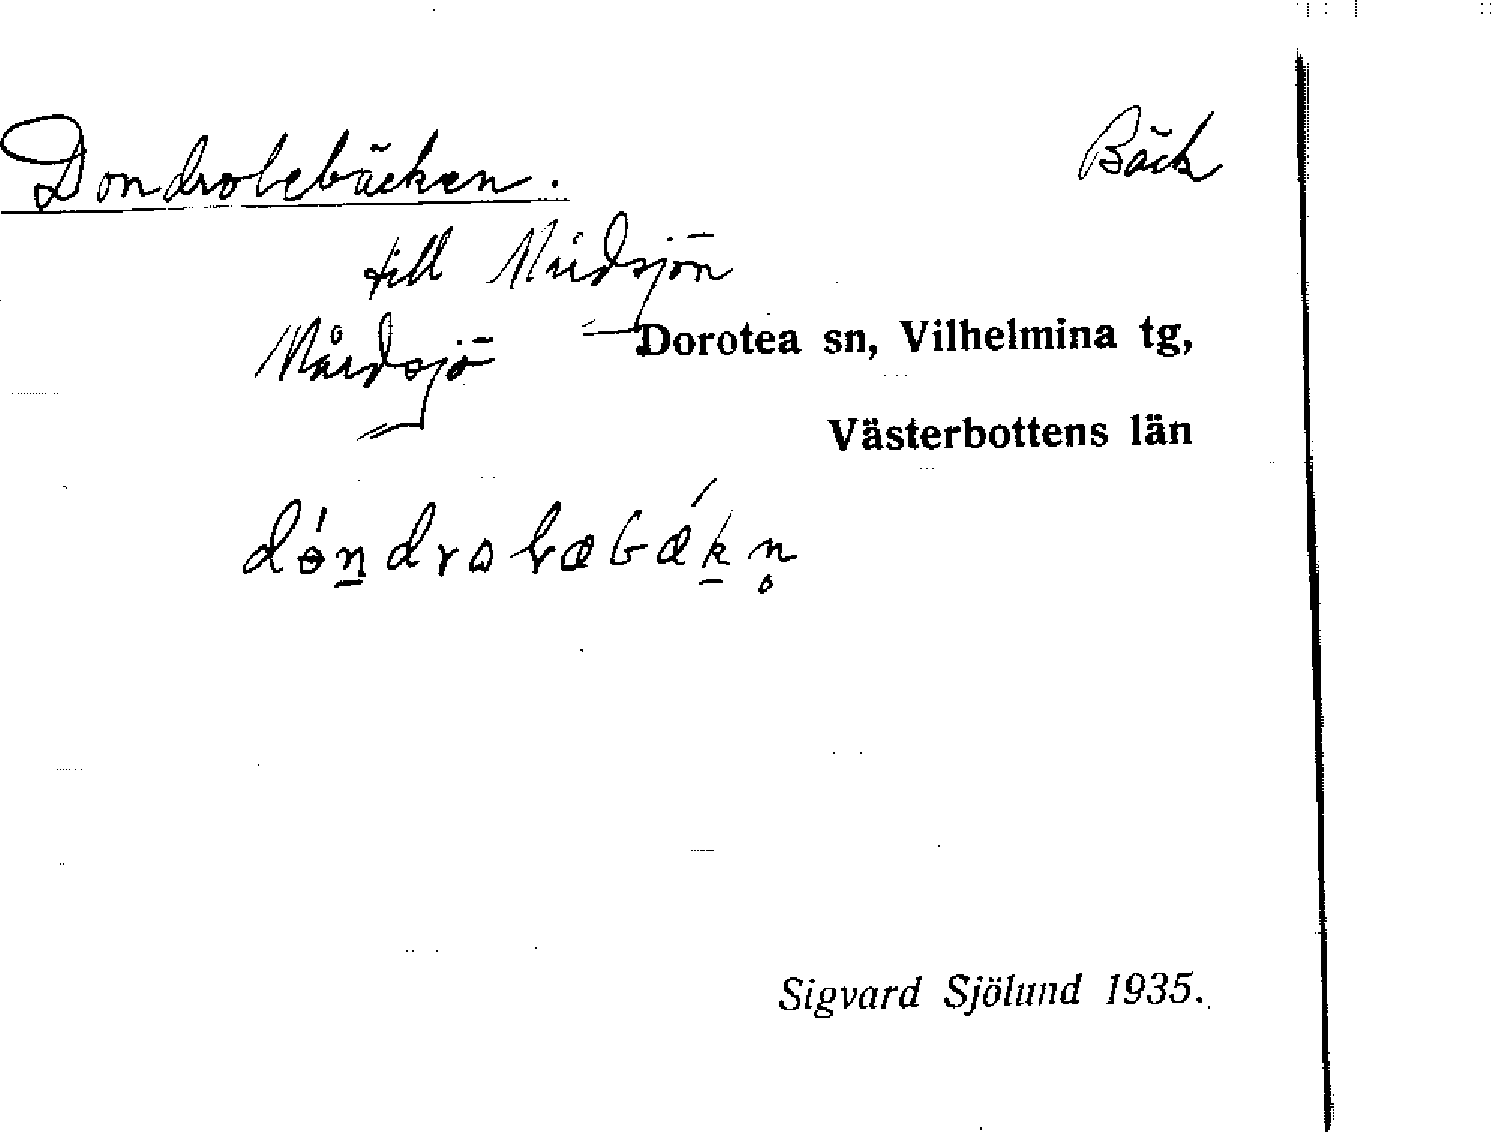 Dondrolebäcken. Bäck
till Mårdsjön
Mårdsjö Dorotea sn, Vilhelmina tg,
Västerbottens län
Sigvard Sjölund 1935.